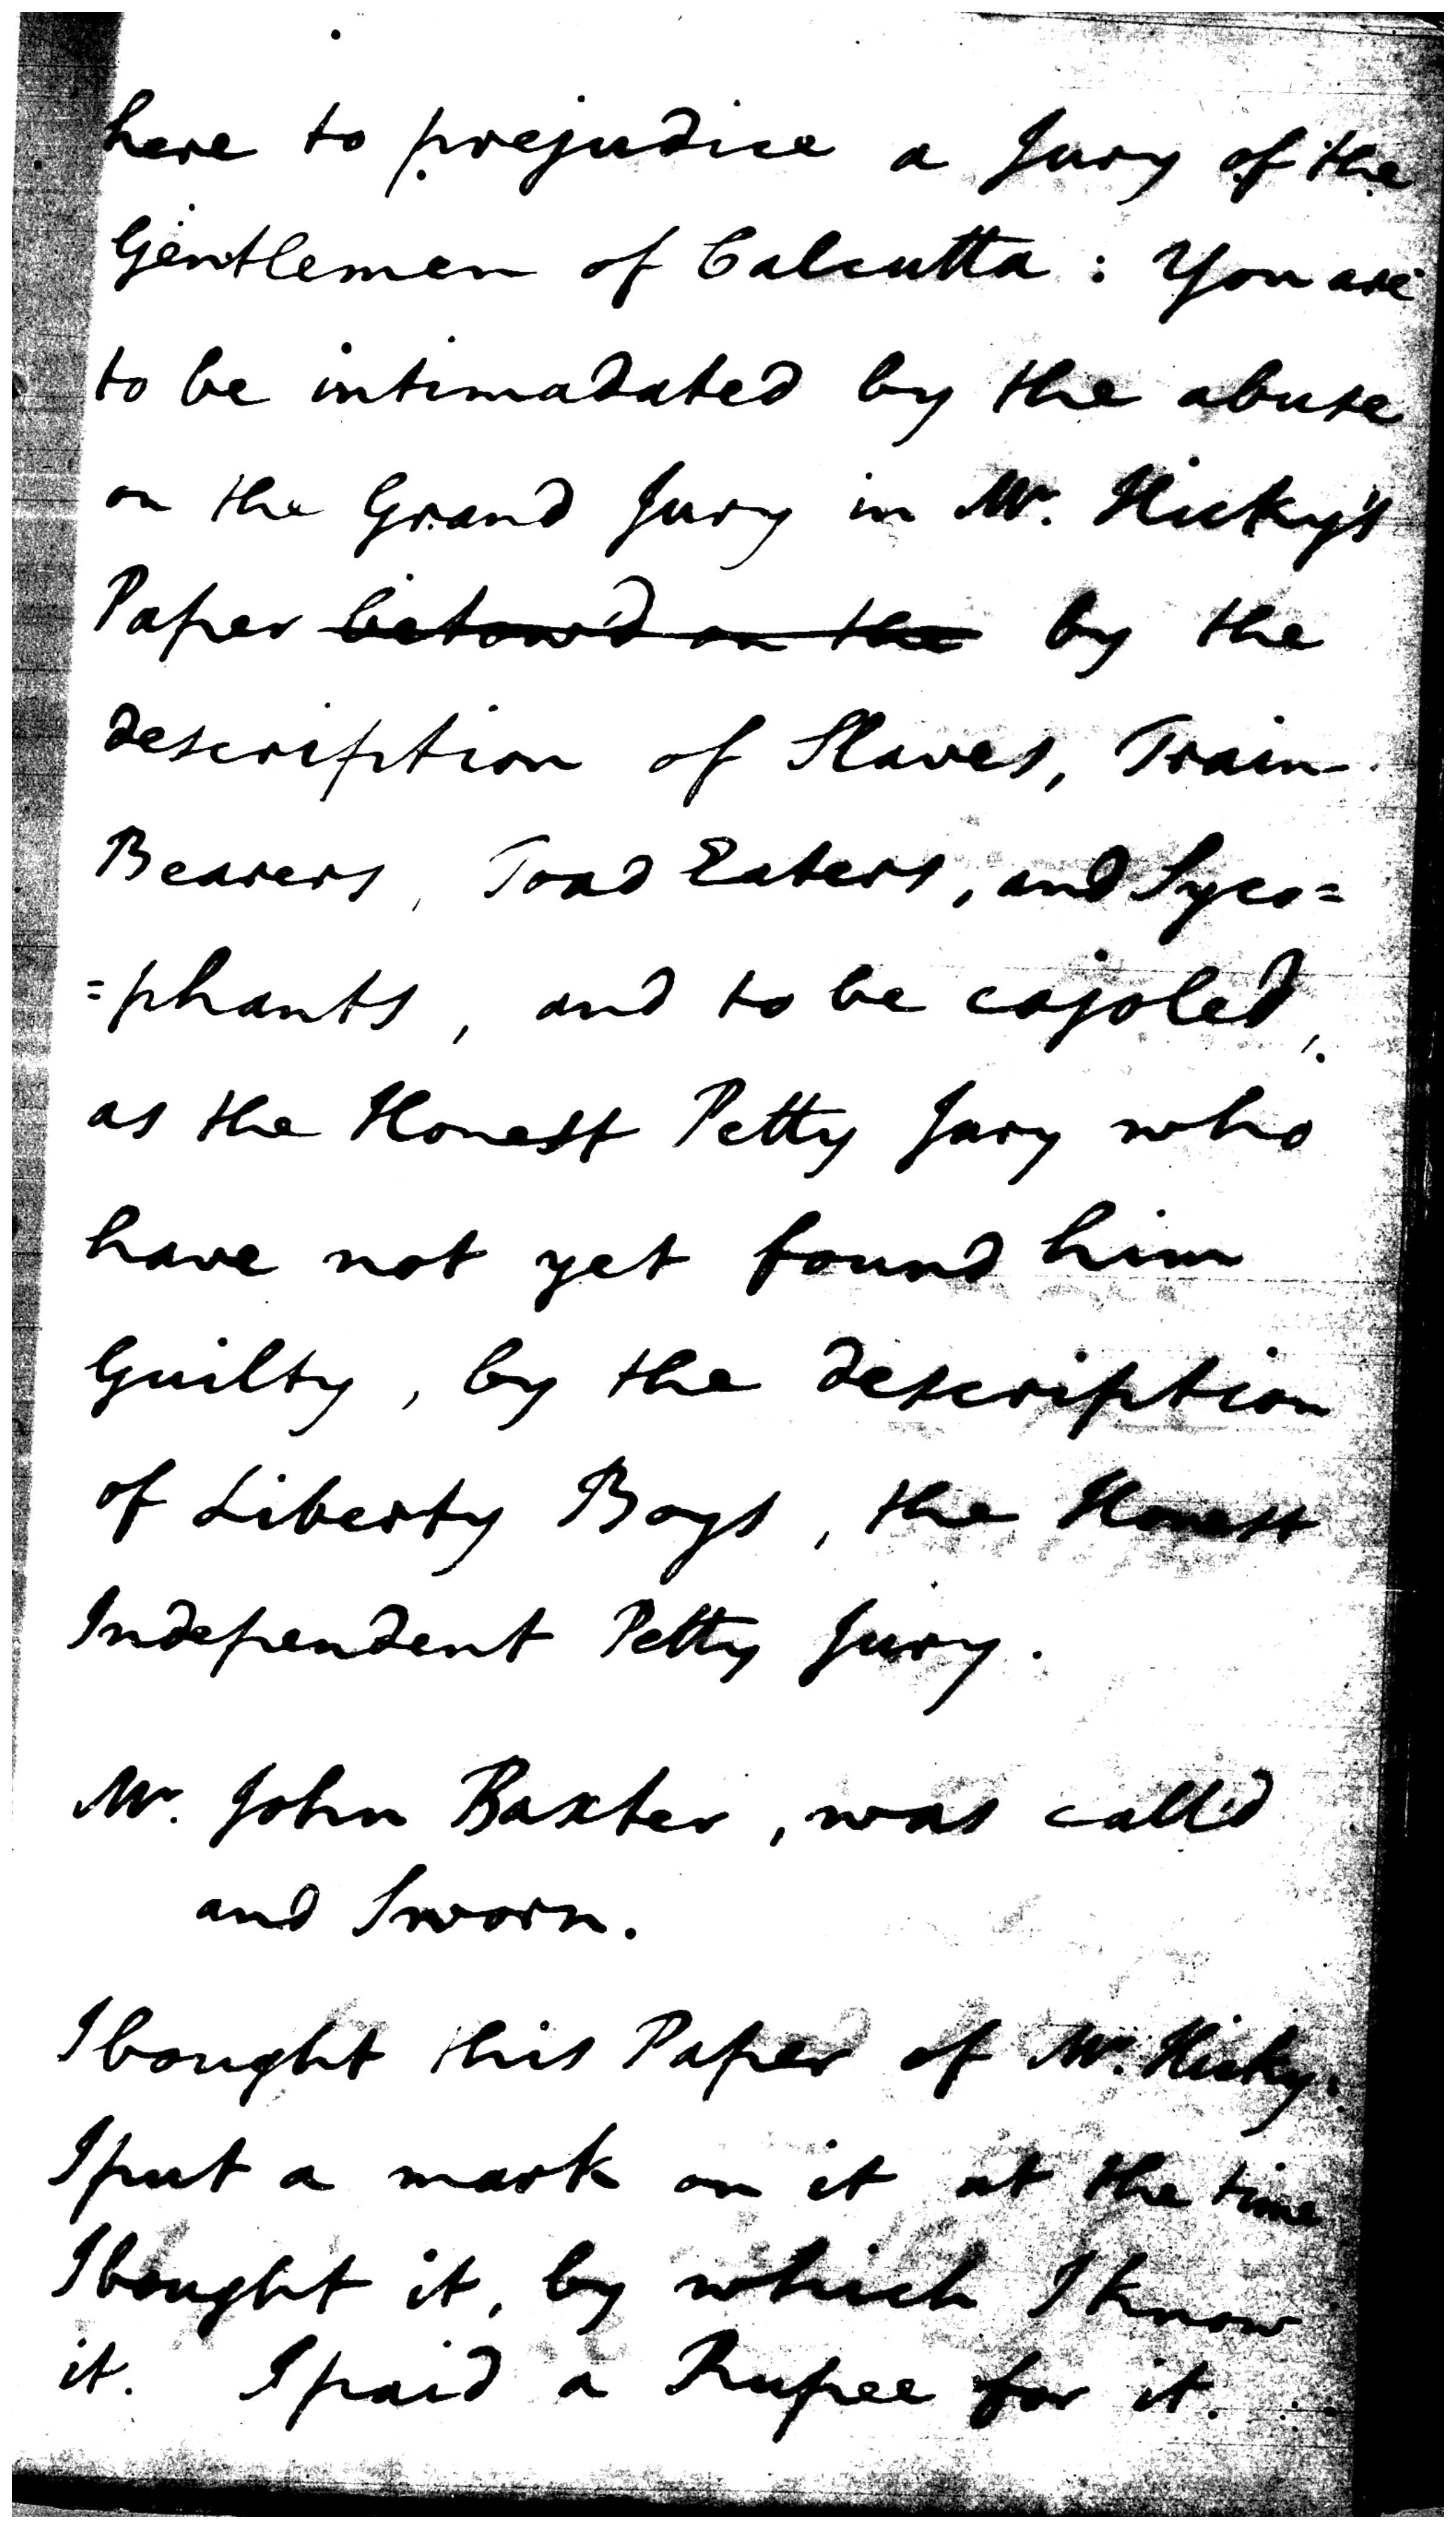 here to prejudice a Jury of the
Gentlemen of Calcutta : You are
to be intimadated by the abuse
on the Grand Jury in Mr. Hicky's
Paper betow'd on the by the
description of Slaves, Train
Bearers, Toad Eaters, and Syco=
=phants, and to be cajoled,
as the Honest Petty Jury who
have not yet found him
Guilty, by the description
of Liberty Boys, the Honest
Independent Petty Jury.
Mr. John Baxter, was call'd
and Sworn.
I bought this Paper of Mr. Hicky.
I put a mark on it at the time
I bought it, by which I know
it. I paid a Rupee for it.